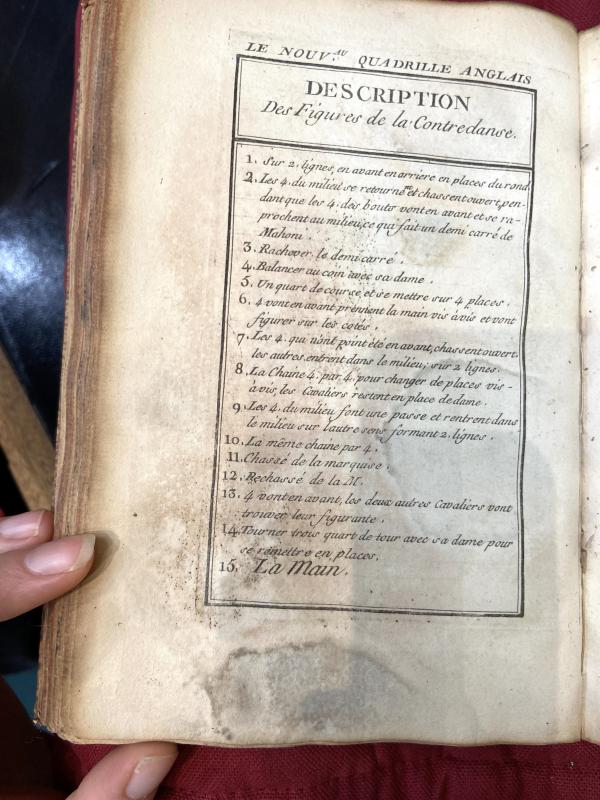 LE NOUV.AU QUADRILLE ANGLAIS
DESCRIPTION
Des Figures de la Contredanse.
1. Sur 2. lignes, en avant en arriere en places du rond
2. Les 4. du milieu se retourne.nt et chassent ouvert, pen-
dant que les 4. des bouts vont en avant et se ra-
prochent au milieu, ce qui fait un demi carré de
Mahoni.
3. Rachover le demi carré.
4. Balancer au coin avec sa dame.
5. Un quart de course, et se mettre sur 4 places.
6. 4 vont en avant prennent la main vis à vis et vont
figurer sur les cotés.
7. Les 4. qui n'ont point été en avant, chassent ouvert.
les autres entrent dans le milieu, sur 2 lignes.
8. La Chaine 4. par 4. pour changer de places vis-
à-vis, les Cavaliers restent en place de dame.
9. Les 4. du milieu font une passe et rentrent dans
le milieu sur l'autre sens formant 2. lignes.
10. La même chaine par 4.
11. Chassé de la marquise.
12. Rechassé de la M.
13. 4 vont en avant, les deux autres Cavaliers vont
trouver leur figurante.
14. Tourner trois quart de tour avec sa dame pour
se remettre en places.
15. La Main.